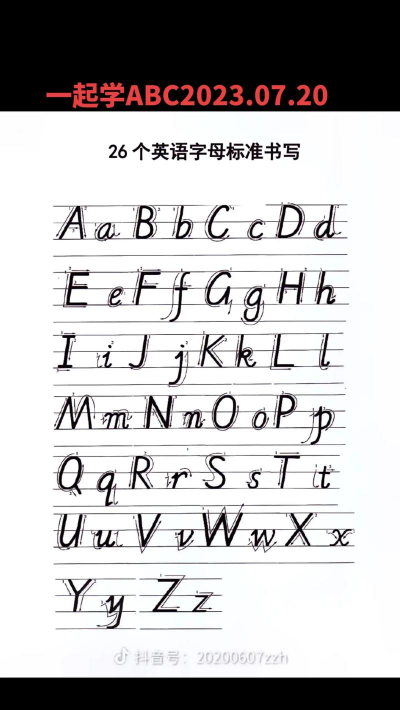 一起学ABC2023.07.20
26个英语字母标准书写
A a B b C c D d
E e F f G g H h
I i J j K k L l
M m N n O o P p
Q q R r S s T t
U u V v W w X x
Y y Z z
抖音号：20200607zzh